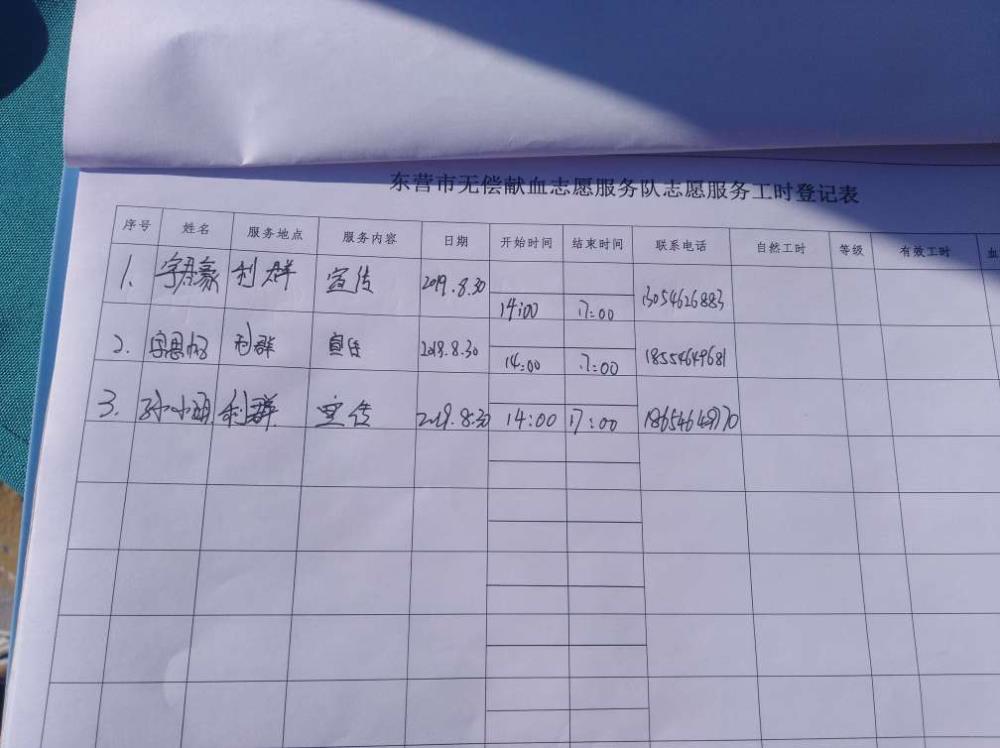 东营市无偿献血志愿服务队志愿服务工时登记表
序号 姓名 服务地点 服务内容 日期 开始时间 结束时间 联系电话 自然工时 等级 有效工时 血
1. 利群 宣传 2019.8.30 14:00 17:00 13054626883
2. 利群 宣传 2019.8.30 14:00 17:00 18554649681
3. 孙小明 利群 宣传 2019.8.30 14:00 17:00